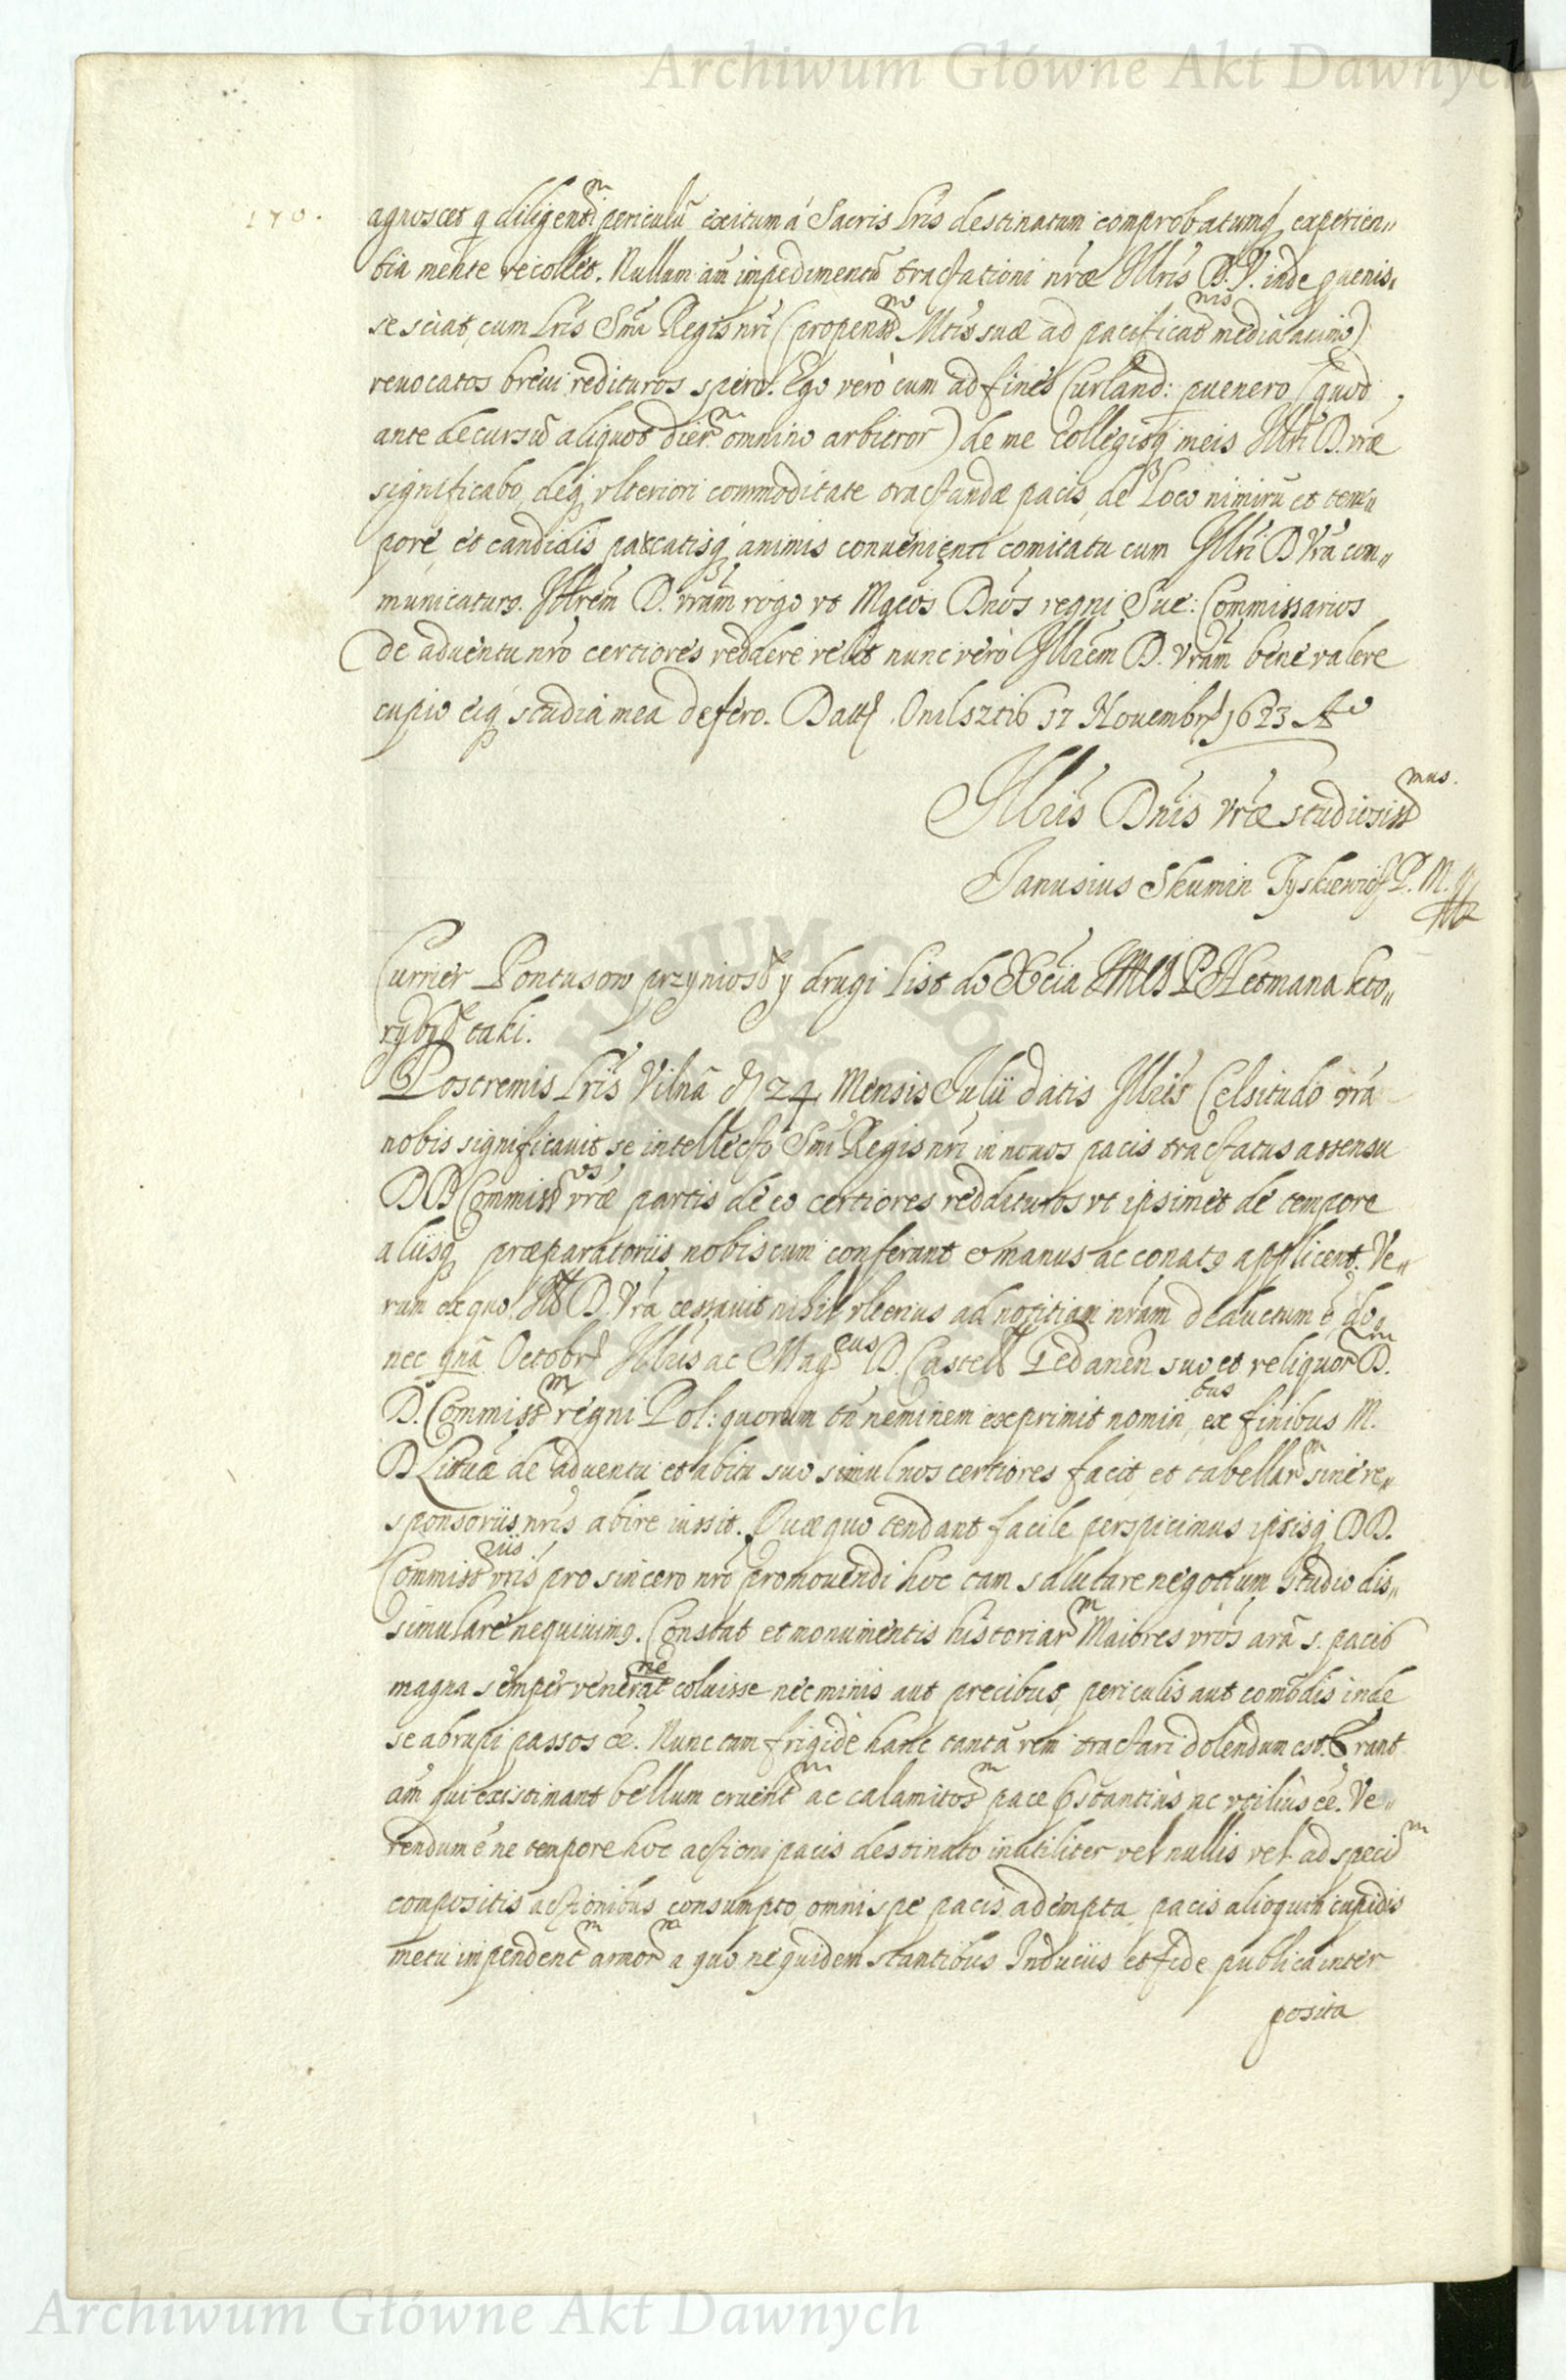 Archiwum Główne Akt Dawnych
170.
agnoscet q diligent^m periculũ exitum á Sacris Lris destinatum comprobatumq experien„
tia mente recollet. Nullum am impedimentũ tractationi nrae Illris D. V. inde quenis„
se sciat, cum Lris Smi Regis nri (propenso Mtis suae ad pacificat^nis media animo)
reuocatos breui redituros spero. Ego verò cum ad fines Curland: puenero (quod
ante decursũ aliquot dier^m omnino arbitror) de me Collegisq meis Illri D. vrae
significabo, deq vlteriori commoditate tractandae pacis, de Loco nimirũ et tem„
pore, et candidis pacatisq animis convenienti comitatu cum Illri D Vra com„
municaturo. Illrem D. vram rogo vt Mgcos Dnos regni Sue: Commissarios
de aduentu nro certiores reddere velit nunc verò Illrem D. Vram bene valere
cupio eiq studia mea defero. Datt. 17 Nouembr 1623 Ao
Illris Dnis Vrae studiosiss^mus.
Janusius Skumin Tyskiewicz P. M.
Currier Pontusow przyniosł y drugi list do Xcia P Hetmana kto„
ry był taki.
Postremis Lris Vilnã d 24 Mensis Julii datis Illris Celsitudo vra
nobis significauit se intellecto Smi Regis nri in nouos pacis tractatus assensu
DD Commiss^os vrae partis de eo certiores reddituros vt ipsimet de tempore
aliisq praeparatoriis nobiscum conferant et manus ac conatus applicent. Ve„
rum ex quo D. Vra cessauit nihil vlterius ad notitiam nram deductum é do„
nec Octobr Illris ac Mag^cus D. Castell suo et reliquor^m D.
D. Commiss^m regni Pol: quorum tñ neminem exprimit nomin^bus ex finibus M.
D Lituae de aduentu et abitu suo simul nos certiores facit et tabellar^m sine re„
sponsoriis nris abire iussit. Quae quo tendant facile perspicimus ipsisq DD.
Commiss^iis vris pro sincero nro promouendi hoc tam salutare negotium studio dis„
simulare nequiuimus. Constat et monumentis historiar^m Maiores vros arã s. pacis
magna semper venerat^ne coluisse nec minis aut precibus, periculis aut comodis inde
se abrupi passos eé. Nunc tam frigidè hanc tantã rem tractari dolendum est. Erant
am qui existimant bellum cruent^m ac calamitos^m pace Constantius ac vtilius eé. Ve„
rendum é ne tempore hoc actioni pacis destinato inutiliter vel nullis vel ad speci^m
compositis actionibus consumpto omni spe pacis adempta, pacis alioquin cupidis
metu impendent^m armor^m a quo ne quidem stantibus Induciis et fide publica inter
posita
Archiwum Główne Akt Dawnych